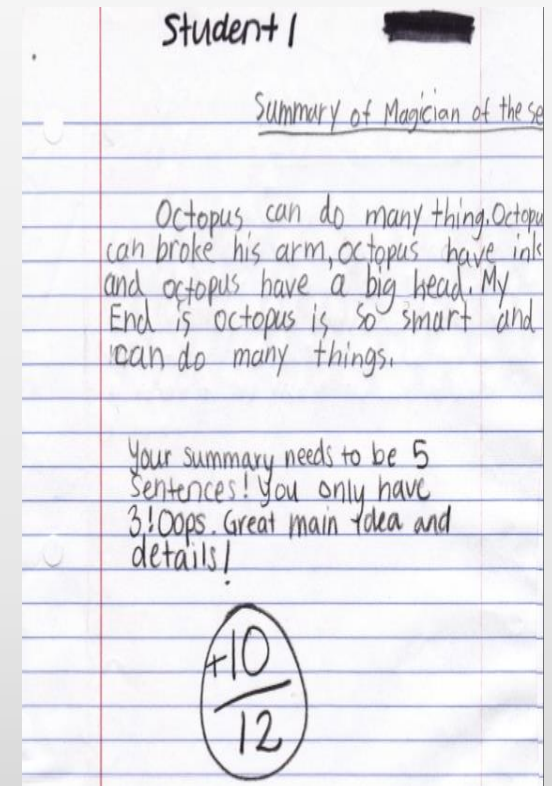 Student 1
Summary of Magician of the se
Octopus can do many thing. Octopu
can broke his arm, octopus have ink
and octopus have a big head. My
End is octopus is so smart and
can do many things.
Your summary needs to be 5
sentences! You only have
3! Oops. Great main idea and
details!
+10
12